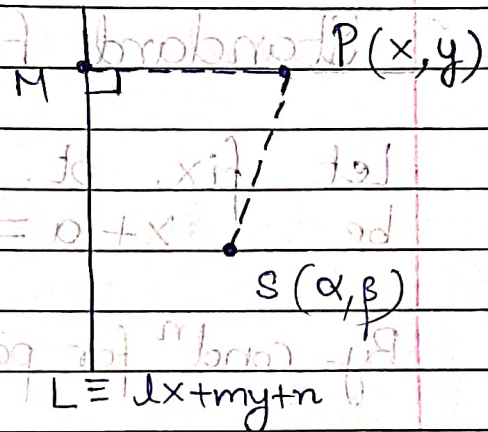 P(x,y)
M
S(α,β)
L ≡ lx+my+n